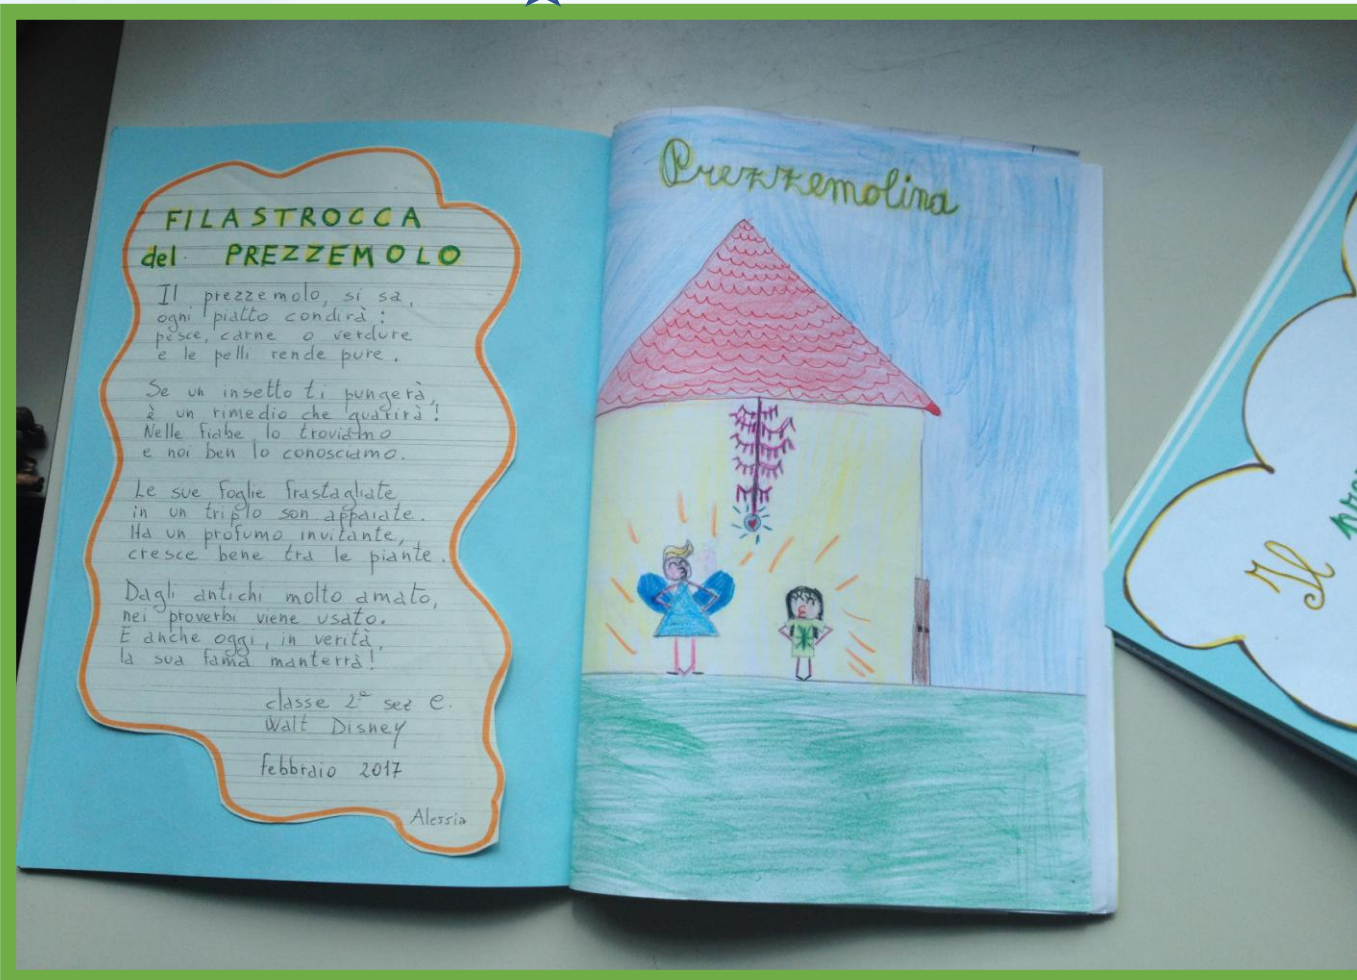 FILASTROCCA
del PREZZEMOLO
Il prezzemolo, si sa,
ogni piatto condirà:
pesce, carne o verdure
e le pelli rende pure.
Se un insetto ti pungerà,
è un rimedio che guarirà!
Nelle fiabe lo troviamo
e noi ben lo conosciamo.
Le sue foglie frastagliate
in un triplo son appaiate.
Ha un profumo invitante,
cresce bene tra le piante.
Dagli antichi molto amato,
nei proverbi viene usato.
E anche oggi, in verità,
la sua fama manterrà!
classe 2ª sez e.
Walt Disney
febbraio 2017
Alessia
Prezzemolina
Il